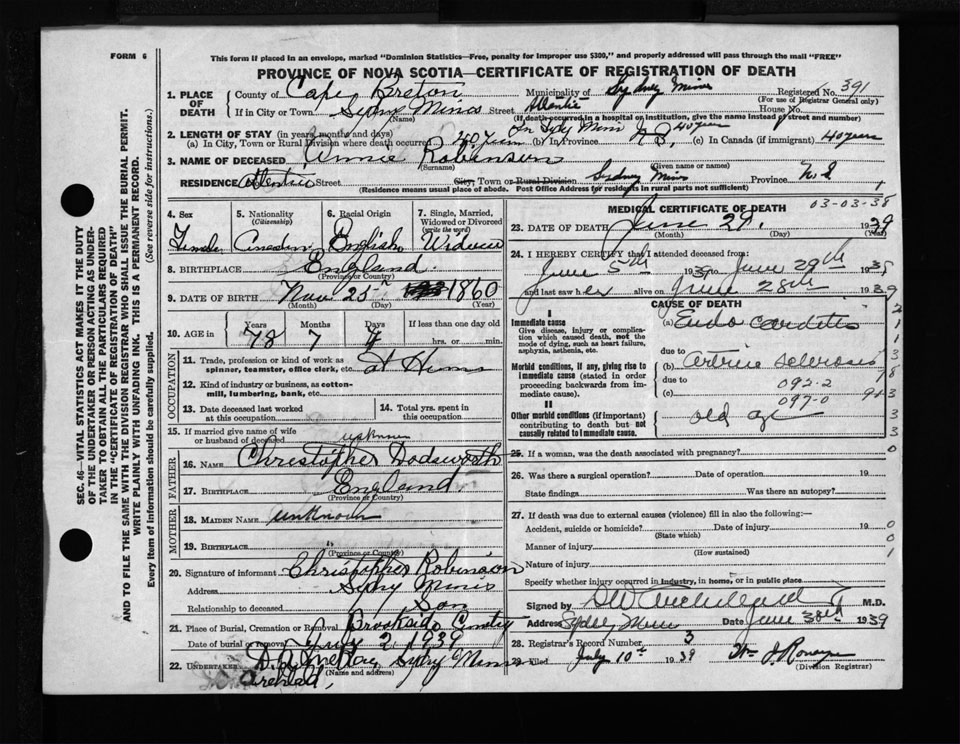 FORM 6
This form if placed in an envelope, marked "Dominion Statistics—Free, penalty for improper use $300," and properly addressed will pass through the mail "FREE"
PROVINCE OF NOVA SCOTIA—CERTIFICATE OF REGISTRATION OF DEATH
SEC. 46—VITAL STATISTICS ACT MAKES IT THE DUTY
OF THE UNDERTAKER OR PERSON ACTING AS UNDER-
TAKER TO OBTAIN ALL THE PARTICULARS REQUIRED
IN THE "CERTIFICATE OF REGISTRATION OF DEATH"
AND TO FILE THE SAME WITH THE DIVISION REGISTRAR WHO SHALL ISSUE THE BURIAL PERMIT.
WRITE PLAINLY WITH UNFADING INK. THIS IS A PERMANENT RECORD.
Every item of information should be carefully supplied. (See reverse side for instructions.)
1. PLACE OF DEATH
County of Cape Breton Municipality of Sydney Mines Registered No. 391
(For use of Registrar General only)
If in City or Town Sydney Mines Street Atlantic House No.
(Name) (If death occurred in a hospital or institution, give the name instead of street and number)
2. LENGTH OF STAY (in years, months and days)
(a) In City, Town or Rural Division where death occurred 40 years (b) In Province 40 years (c) In Canada (if immigrant) 40 years
3. NAME OF DECEASED Annie Robinson
(Surname) (Given name or names)
RESIDENCE Atlantic Street City, Town or Rural Division Sydney Mines Province N.S
(Residence means usual place of abode. Post Office Address for residents in rural parts not sufficient)
4. Sex 5. Nationality (Citizenship) 6. Racial Origin 7. Single, Married, Widowed or Divorced (write the word)
Female English Widow
8. BIRTHPLACE England
(Province or Country)
9. DATE OF BIRTH Nov 25th 1860
(Month) (Day) (Year)
10. AGE in Years Months Days If less than one day old
78 7 hrs. or min.
OCCUPATION
11. Trade, profession or kind of work as spinner, teamster, office clerk, etc. At Home
12. Kind of industry or business, as cotton-mill, lumbering, bank, etc.
13. Date deceased last worked at this occupation
14. Total yrs. spent in this occupation
15. If married give name of wife or husband of deceased unknown
FATHER
16. NAME Christopher Dodsworth
17. BIRTHPLACE England
(Province or Country)
MOTHER
18. MAIDEN NAME unknown
19. BIRTHPLACE
(Province or Country)
20. Signature of informant Christopher Robinson
Address Sydney Mines
Relationship to deceased Son
21. Place of Burial, Cremation or Removal Brookside Cemetery
Date of burial or removal July 2, 1939
22. UNDERTAKER Sydney Mines
(Name and address)
MEDICAL CERTIFICATE OF DEATH 03-03-38
23. DATE OF DEATH June 29, 1939
(Month) (Day) (Year)
24. I HEREBY CERTIFY that I attended deceased from:
June 5th 1939 to June 29th 1939
and last saw her alive on June 28th 1939
CAUSE OF DEATH
I
Immediate cause
Give disease, injury or complication which caused death, not the mode of dying, such as heart failure, asphyxia, asthenia, etc.
(a) Endo carditis
due to
Morbid conditions, if any, giving rise to immediate cause (stated in order proceeding backwards from immediate cause).
(b) arterio sclerosis
due to 092-2
(c) 097-0
II
Other morbid conditions (if important) contributing to death but not causally related to immediate cause.
old age
25. If a woman, was the death associated with pregnancy?
26. Was there a surgical operation? Date of operation 19
State findings Was there an autopsy?
27. If death was due to external causes (violence) fill in also the following:—
Accident, suicide or homicide? Date of injury 19
(State which)
Manner of injury
(How sustained)
Nature of injury
Specify whether injury occurred in industry, in home, or in public place
Signed by M.D.
Address Sydney Mines Date June 30th 1939
28. Registrar's Record Number 3
29. Filed July 10th 1939
(Division Registrar)